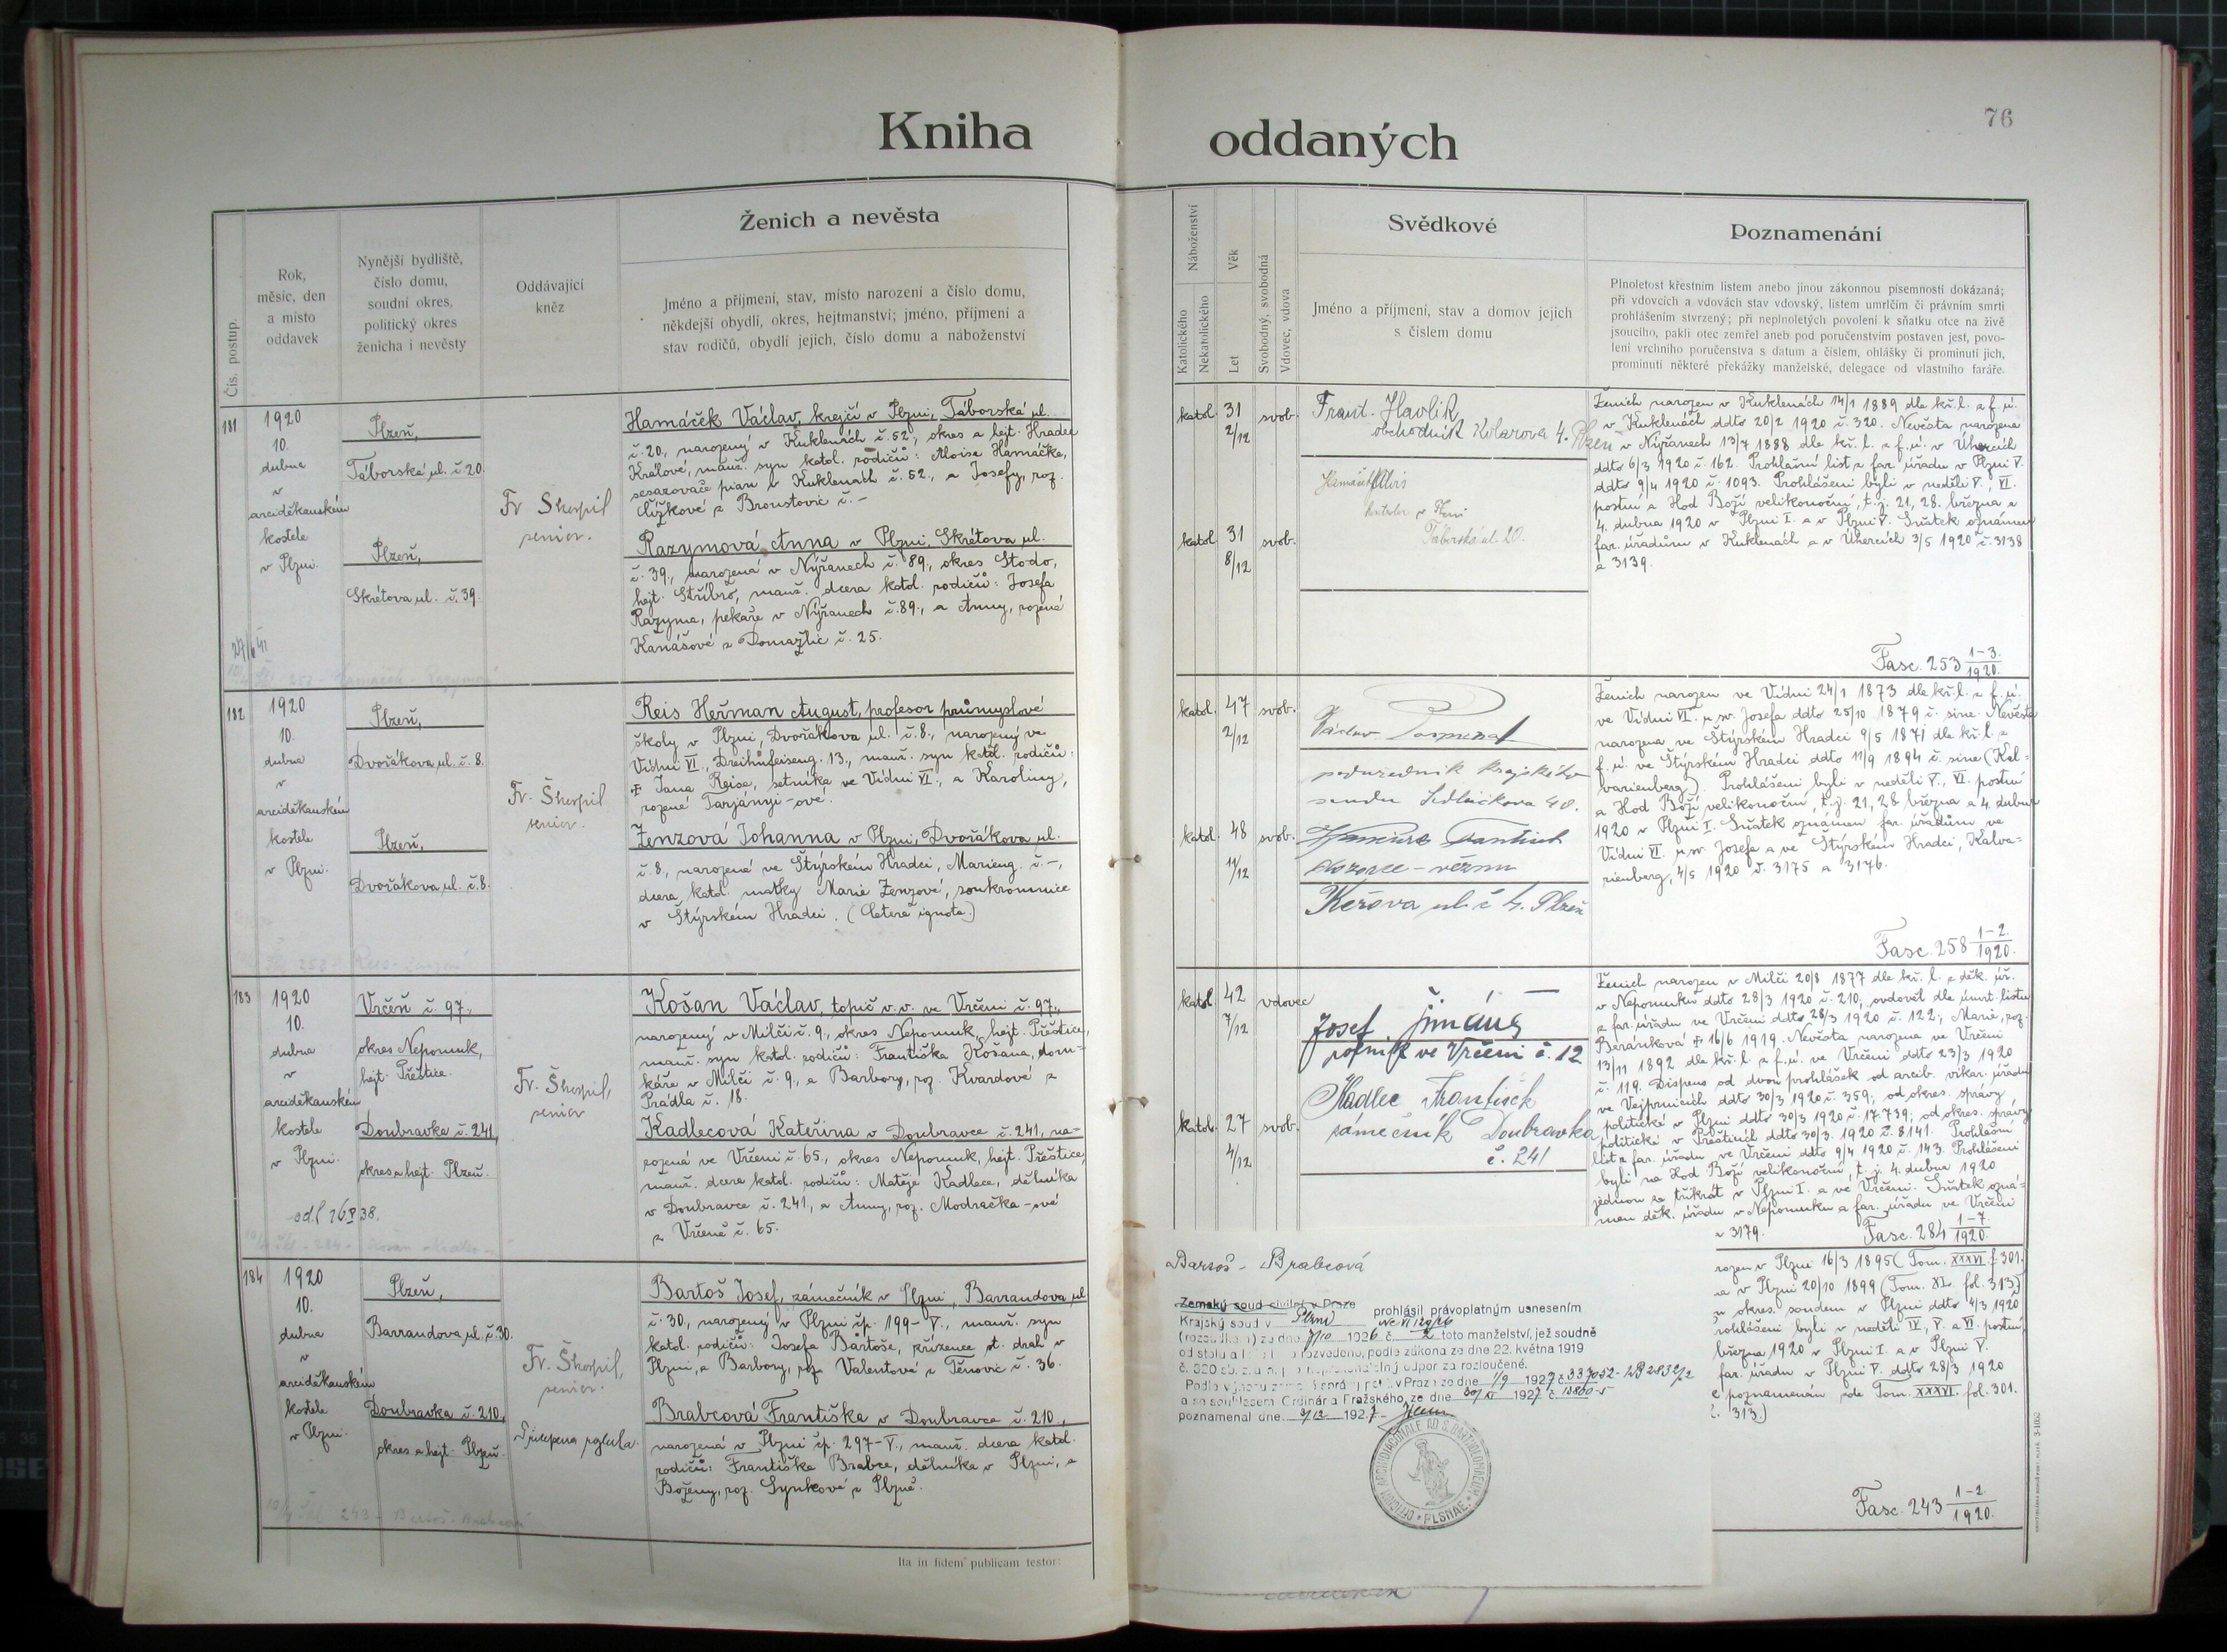 Kniha
oddaných
76
Čís. postup.
Rok,
měsíc, den
a místo
oddavek
Nynější bydliště,
číslo domu,
soudní okres,
politický okres
ženicha i nevěsty
Oddávající
kněz
Ženich a nevěsta
Jméno a příjmení, stav, místo narození a číslo domu,
někdejší obydlí, okres, hejtmanství; jméno, příjmení a
stav rodičů, obydlí jejich, číslo domu a náboženství
Náboženství
Katolického
Nekatolického
Věk
Let
Svobodný, svobodná
Vdovec, vdova
Svědkové
Jméno a příjmení, stav a domov jejich
s číslem domu
Poznamenání
Plnoletost křestním listem anebo jinou zákonnou písemností dokázaná;
při vdovcích a vdovách stav vdovský, listem umrlčím či právním smrti
prohlášením stvrzený; při neplnoletých povolení k sňatku otce na živě
jsoucího, pakli otec zemřel aneb pod poručenstvím postaven jest, povo-
lení vrchního poručenstva s datum a číslem, ohlášky či prominutí jich,
prominutí některé překážky manželské, delegace od vlastního faráře.
181
1920
10.
dubna
v
arciděkanském
kostele
v Plzni.
Plzeň,
Táborská ul. č. 20.
Plzeň,
Skrétova ul. č. 39.
Fr. Škorpil
senior.
Hamáček Václav, krejčí v Plzni, Táborská ul.
č. 20., narozený v Kuklenách č. 52., okres a hejt. Hradec
Králové, manž. syn katol. rodičů: Aloise Hamáčka,
sesazovače pian v Kuklenách č. 52., a Josefy, roz.
Čížkové z Broustovic č. -
Razymová Anna v Plzni, Skrétova ul.
č. 39., narozená v Nýřanech č. 89., okres Stodo,
hejt. Stříbro, manž. dcera katol. rodičů: Josefa
Razyma, pekaře v Nýřanech č. 89., a Anny, rozené
Kanášové z Domažlic č. 25.
katol. 31 2/12 svob.
katol. 31 8/12 svob.
Frant. Havlík
obchodník Kolarova 4. Plzeň
Hamáček Alois
v Plzni
Táborská ul. 20.
Ženich narozen v Kuklenách 14/1 1889 dle kř. l. z f. ú.
v Kuklenách ddto 20/2 1920 č. 320. Nevěsta narozena
v Nýřanech 13/7 1888 dle kř. l. z f. ú. v Úhercích
ddto 6/3 1920 č. 162. Prohlášní list z far. úřadu v Plzni V.
ddto 9/4 1920 č. 1093. Prohlášeni byli v neděli V., VI.
postní a Hod Boží velikonoční, t. j. 21., 28. března a
4. dubna 1920 v Plzni I. a v Plzni V. Sňatek oznámen
far. úřadům v Kuklenách a v Úhercích 3/5 1920 č. 3138
a 3139.
Fasc. 253 1-3./1920.
182
1920
10.
dubna
v
arciděkanském
kostele
v Plzni.
Plzeň,
Dvořákova ul. č. 8.
Plzeň,
Dvořákova ul. č. 8.
Fr. Škorpil
senior.
Reis Heřman August, profesor průmyslové
školy v Plzni, Dvořákova ul. č. 8., narozený ve
Vídni VI., Dreihufeiseng. 13., manž. syn katol. rodičů:
† Jana Reise, setníka ve Vídni VI., a Karoliny,
rozené Tarjányi-ové.
Zenzová Johanna v Plzni, Dvořákova ul.
č. 8., narozené ve Štýrském Hradci, Marieng. č. -,
dcera katol. matky Marie Zenzové, soukromnice
v Štýrském Hradci. (Cetera ignota.)
katol. 47 2/12 svob.
katol. 48 11/12 svob.
Václav
podúředník krajského
soudu Sedláčkova 40.
dozorce - věznů
Keřova ul. č 4. Plzeň
Ženich narozen ve Vídni 24/1 1873 dle kř. l. z f. ú.
ve Vídni VI. u sv. Josefa ddto 25/10 1879 č. sine. Nevěsta
narozena ve Štýrském Hradci 9/5 1871 dle kř. l. z
f. ú. ve Štýrském Hradci ddto 11/9 1894 č. sine (Kal-
varienberg). Prohlášeni byli v neděli V., VI. postní
a Hod Boží velikonoční, t. j. 21., 28. března a 4. dubna
1920 v Plzni I. Sňatek oznámen far. úřadům ve
Vídni VI. u sv. Josefa a ve Štýrském Hradci, Kalva-
rienberg, 4/5 1920 č. 3175 a 3176.
Fasc. 258 1-2./1920.
183
1920
10.
dubna
v
arciděkanském
kostele
v Plzni.
Vrčeň č. 97.,
okres Nepomuk,
hejt. Přeštice.
Doubravka č. 241,
okres a hejt. Plzeň.
Fr. Škorpil,
senior
Košan Václav, topič v. v. ve Vrčeni č. 97.,
narozený v Milči č. 9., okres Nepomuk, hejt. Přeštice,
manž. syn katol. rodičů: Františka Košana, dom-
káře v Milči č. 9., a Barbory, roz. Kvardové z
Prádla č. 18.
Kadlecová Kateřina v Doubravce č. 241, na-
rozená ve Vrčeni č. 65., okres Nepomuk, hejt. Přeštice,
manž. dcera katol. rodičů: Matěje Kadlece, dělníka
v Doubravce č. 241, a Anny, roz. Modračka-ové
z Vrčeně č. 65.
katol. 42 7/12 vdovec
katol. 27 4/12 svob.
Josef Jimáus
rolník ve Vrčeni č. 12
Kadlec František
zámečník Doubravka
č. 241
Ženich narozen v Milči 20/8 1877 dle kř. l. z děk. úř.
v Nepomuku ddto 28/3 1920 č. 210, ovdověl dle úmrt. listu
z far. úřadu ve Vrčeni ddto 28/3 1920 č. 122., Marie, roz.
Beránková † 16/6 1919. Nevěsta narozena ve Vrčeni
13/11 1892 dle kř. l. z f. ú. ve Vrčeni ddto 23/3 1920
č. 119. Dispens od dvou prohlášek od arcib. vikar. úřadu
ve Vejprnicích ddto 30/3 1920 č. 359; od okres. správy
politické v Plzni ddto 30/3 1920 č. 17.739; od okres. správy
politické v Přešticích ddto 30/3. 1920 č. 8141. Prohlášní
list z far. úřadu ve Vrčeni ddto 9/4 1920 č. 143. Prohlášeni
byli na Hod Boží velikonoční, t. j. 4. dubna 1920
jednou za třikrát v Plzni I. a ve Vrčeni. Sňatek ozná-
men děk. úřadu v Nepomuku a far. úřadu ve Vrčeni
3179.
Fasc. 284 1-7/1920.
184
1920
10.
dubna
v
arciděkanském
kostele
v Plzni.
Plzeň,
Barrandova ul. č. 30.
Doubravka č. 210,
okres a hejt. Plzeň.
Fr. Škorpil,
senior.
Bartoš Josef, zámečník v Plzni, Barrandova ul.
č. 30, narozený v Plzni čp. 199-V., manž. syn
katol. rodičů: Josefa Bartoše, zřízence st. drah v
Plzni, a Barbory, roz. Valentové z Těnovic č. 36.
Brabcová Františka v Doubravce č. 210,
narozená v Plzni čp. 297-V., manž. dcera katol.
rodičů: Františka Brabce, dělníka v Plzni, a
Boženy, roz. Synkové z Plzně.
243 - Bartoš - Brabcová
Ita in fidem publicam testor:
Bartoš - Brabcová
Zemský soud civilní v Praze prohlásil právoplatným usnesením
Krajský soud v Plzni
(rozsudkem) ze dne 7/10 1926 č. toto manželství, jež soudně
od stolu a lože bylo rozvedeno, podle zákona ze dne 22. května 1919
č. 320 sb. z. a n. za rozloučené.
Podle výnosu zemské správy polit. v Praze ze dne 1/9 1927 č.
a se souhlasem Ordinariátu Pražského, ze dne 30/XI 1927 č. 13860-5
poznamenal dne 1927
OFFICIUM ARCHIDIACONALE AD S. BARTHOLOMAEUM PLSNAE
rozen v Plzni 16/3 1895 (Tom. XXXVI. f. 301.)
na v Plzni 20/10 1899 (Tom. XL. fol. 313)
okres. soudem v Plzni ddto 4/3 1920
rohlášeni byli v neděli IV., V. a VI. postní,
března 1920 v Plzni I. a v Plzni V.
far. úřadu v Plzni V. ddto 28/3 1920
poznamenán zde Tom. XXXVI. fol. 301.
313.)
Fasc. 243 1-2/1920.